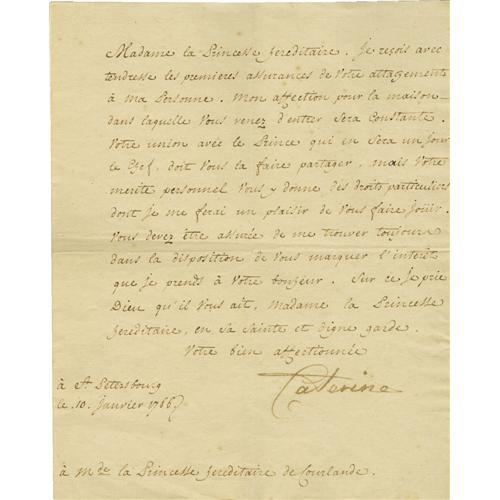 Madame la Princesse Hereditaire. Je reçois avec
tendresse les premieres assurances de Votre attachement
à ma Personne. Mon affection pour la maison
dans laquelle Vous venez d'entrer Sera Constante.
Votre union avec le Prince qui en Sera un Jour
le Chef, doit Vous la faire partager, mais Votre
merite personnel Vous y donne des droits particuliers
dont je me ferai un plaisir de Vous faire Joüir.
Vous devez être assurée de me trouver toujours
dans la disposition de Vous marquer l'intérêt
que je prends à Votre bonheur. Sur ce je prie
Dieu qu'il Vous ait, Madame la Princesse
Hereditaire, en Sa Sainte et digne garde.
Votre bien affectionnée
Caterine
à St. Petersbourg
le 10. Janvier 1766
à Mde la Princesse Hereditaire de Courlande.